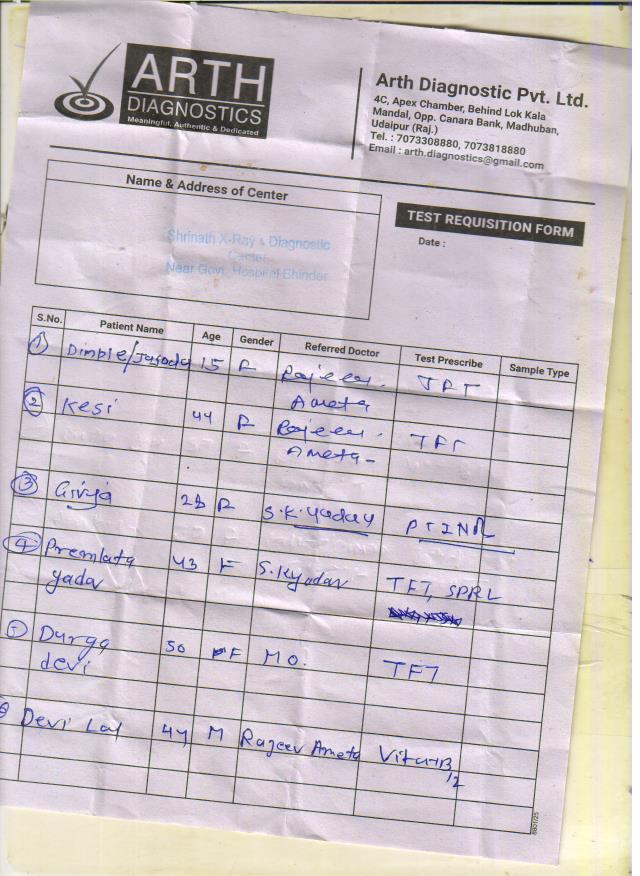 ARTH
DIAGNOSTICS
Meaningful, Authentic & Dedicated
Arth Diagnostic Pvt. Ltd.
4C, Apex Chamber, Behind Lok Kala
Mandal, Opp. Canara Bank, Madhuban,
Udaipur (Raj.)
Tel. : 7073308880, 7073818880
Email : arth.diagnostics@gmail.com
Name & Address of Center
TEST REQUISITION FORM
Date :
Shrinath X-Ray & Diagnostic
Center
Near Govt. Hospital Bhinder
S.No. Patient Name Age Gender Referred Doctor Test Prescribe Sample Type
1 Dimple/Jasoda 15 F Rajeev TFT
Ameta
2 Kesi 44 F Rajeev TFT
Ameta
3 28 F S.K. Yadav PTINR
4 Premlata 43 F S.K yadav TFT, SPRL
yadav
5 Durga 50 F MO. TFT
devi
Devi Lal 44 M Rajeev Ameta Vit-B
12